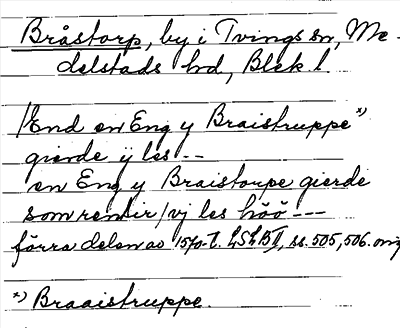 Bråstorp, by i Tvings sn, Me-
delstads hd, Blek l.
/End en Eng y Braistruppe *)
gierde ij les --
en Eng y Braistorpe gierde
som rentir / vj les höö ---
förra delen av 1570-t. LSLB II, ss. 505, 506. orig
*) Braaistruppe.